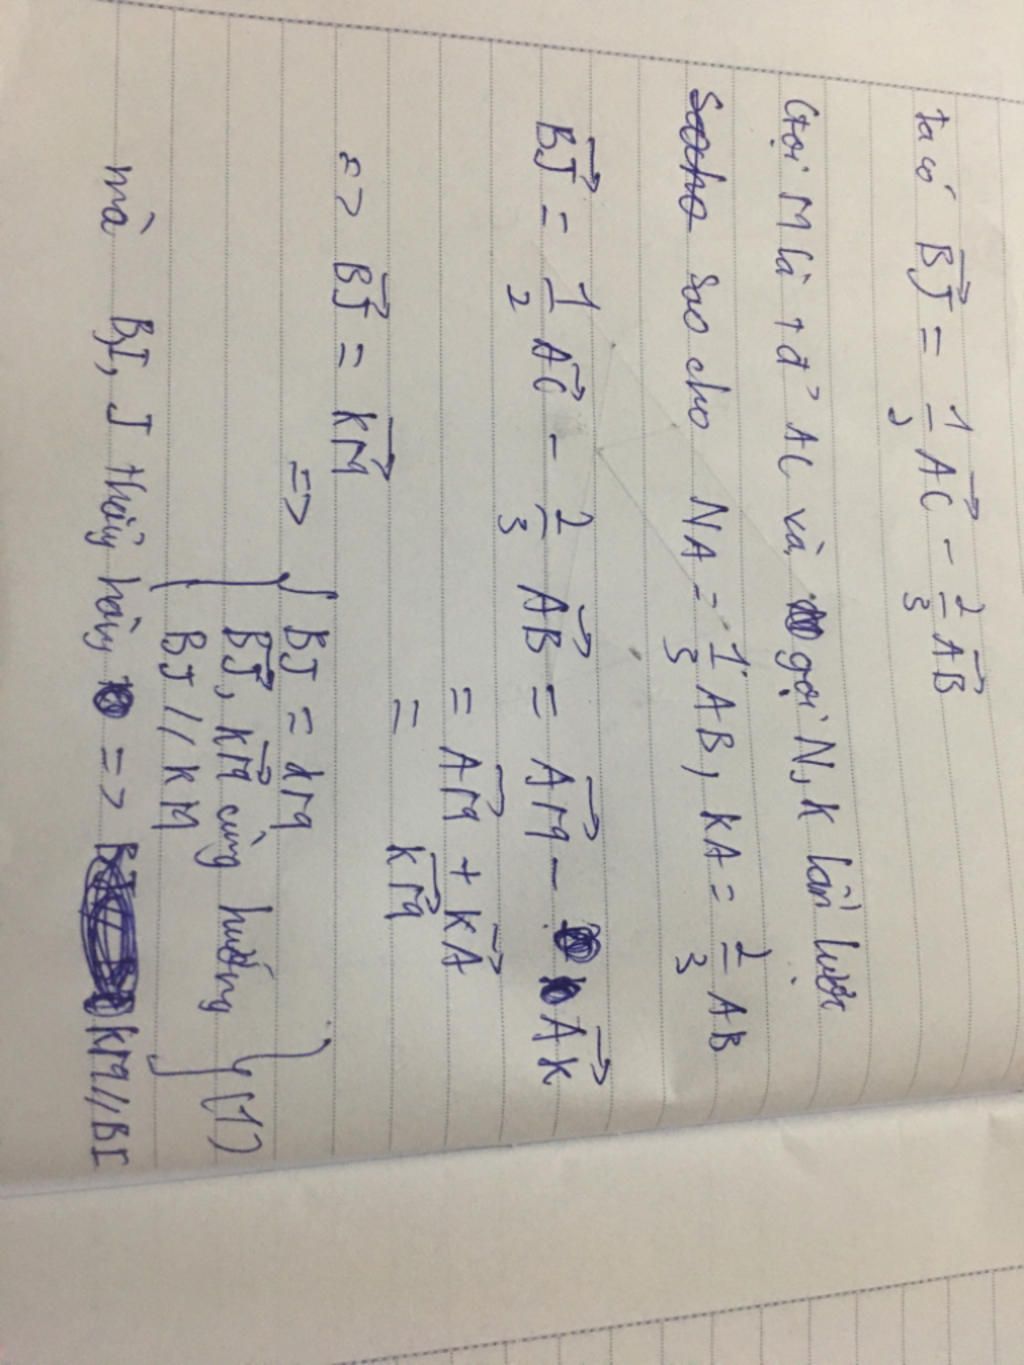 Ta có BJ = 1/2 AC - 2/3 AB
Gọi M là tđ AC và gọi N, K lần lượt
Socho Sao cho NA = 1/3 AB, KA = 2/3 AB
BJ = 1/2 AC - 2/3 AB = AM - AK
= AM + KA
= KM
=> BJ = KM
=> { BJ = KM
BJ, KM cùng hướng } (1)
BJ // KM
mà BI, J thẳng hàng => KM // BI